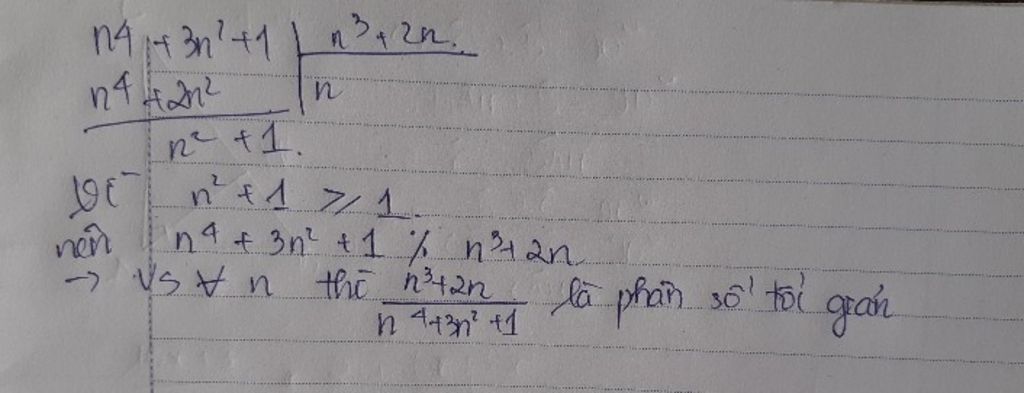 n⁴ + 3n² + 1 | n³ + 2n.
n⁴ + 2n² | n
n² + 1.
Vì n² + 1 ≥ 1.
nên n⁴ + 3n² + 1 ⋮̸ n³ + 2n
→ Vs ∀ n thì (n³+2n)/(n⁴+3n²+1) là phân số tối giản